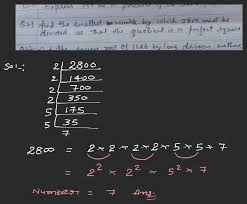 Q2) find the smallest number by which 2800 must be
divided so that the quotient is a perfect square
the square root of by long division method
Sol:-
2 | 2800
2 | 1400
2 | 700
2 | 350
5 | 175
5 | 35
7
2800 = 2×2×2×2×5×5×7
= 2² × 2² × 5² × 7
Number = 7 Ans.